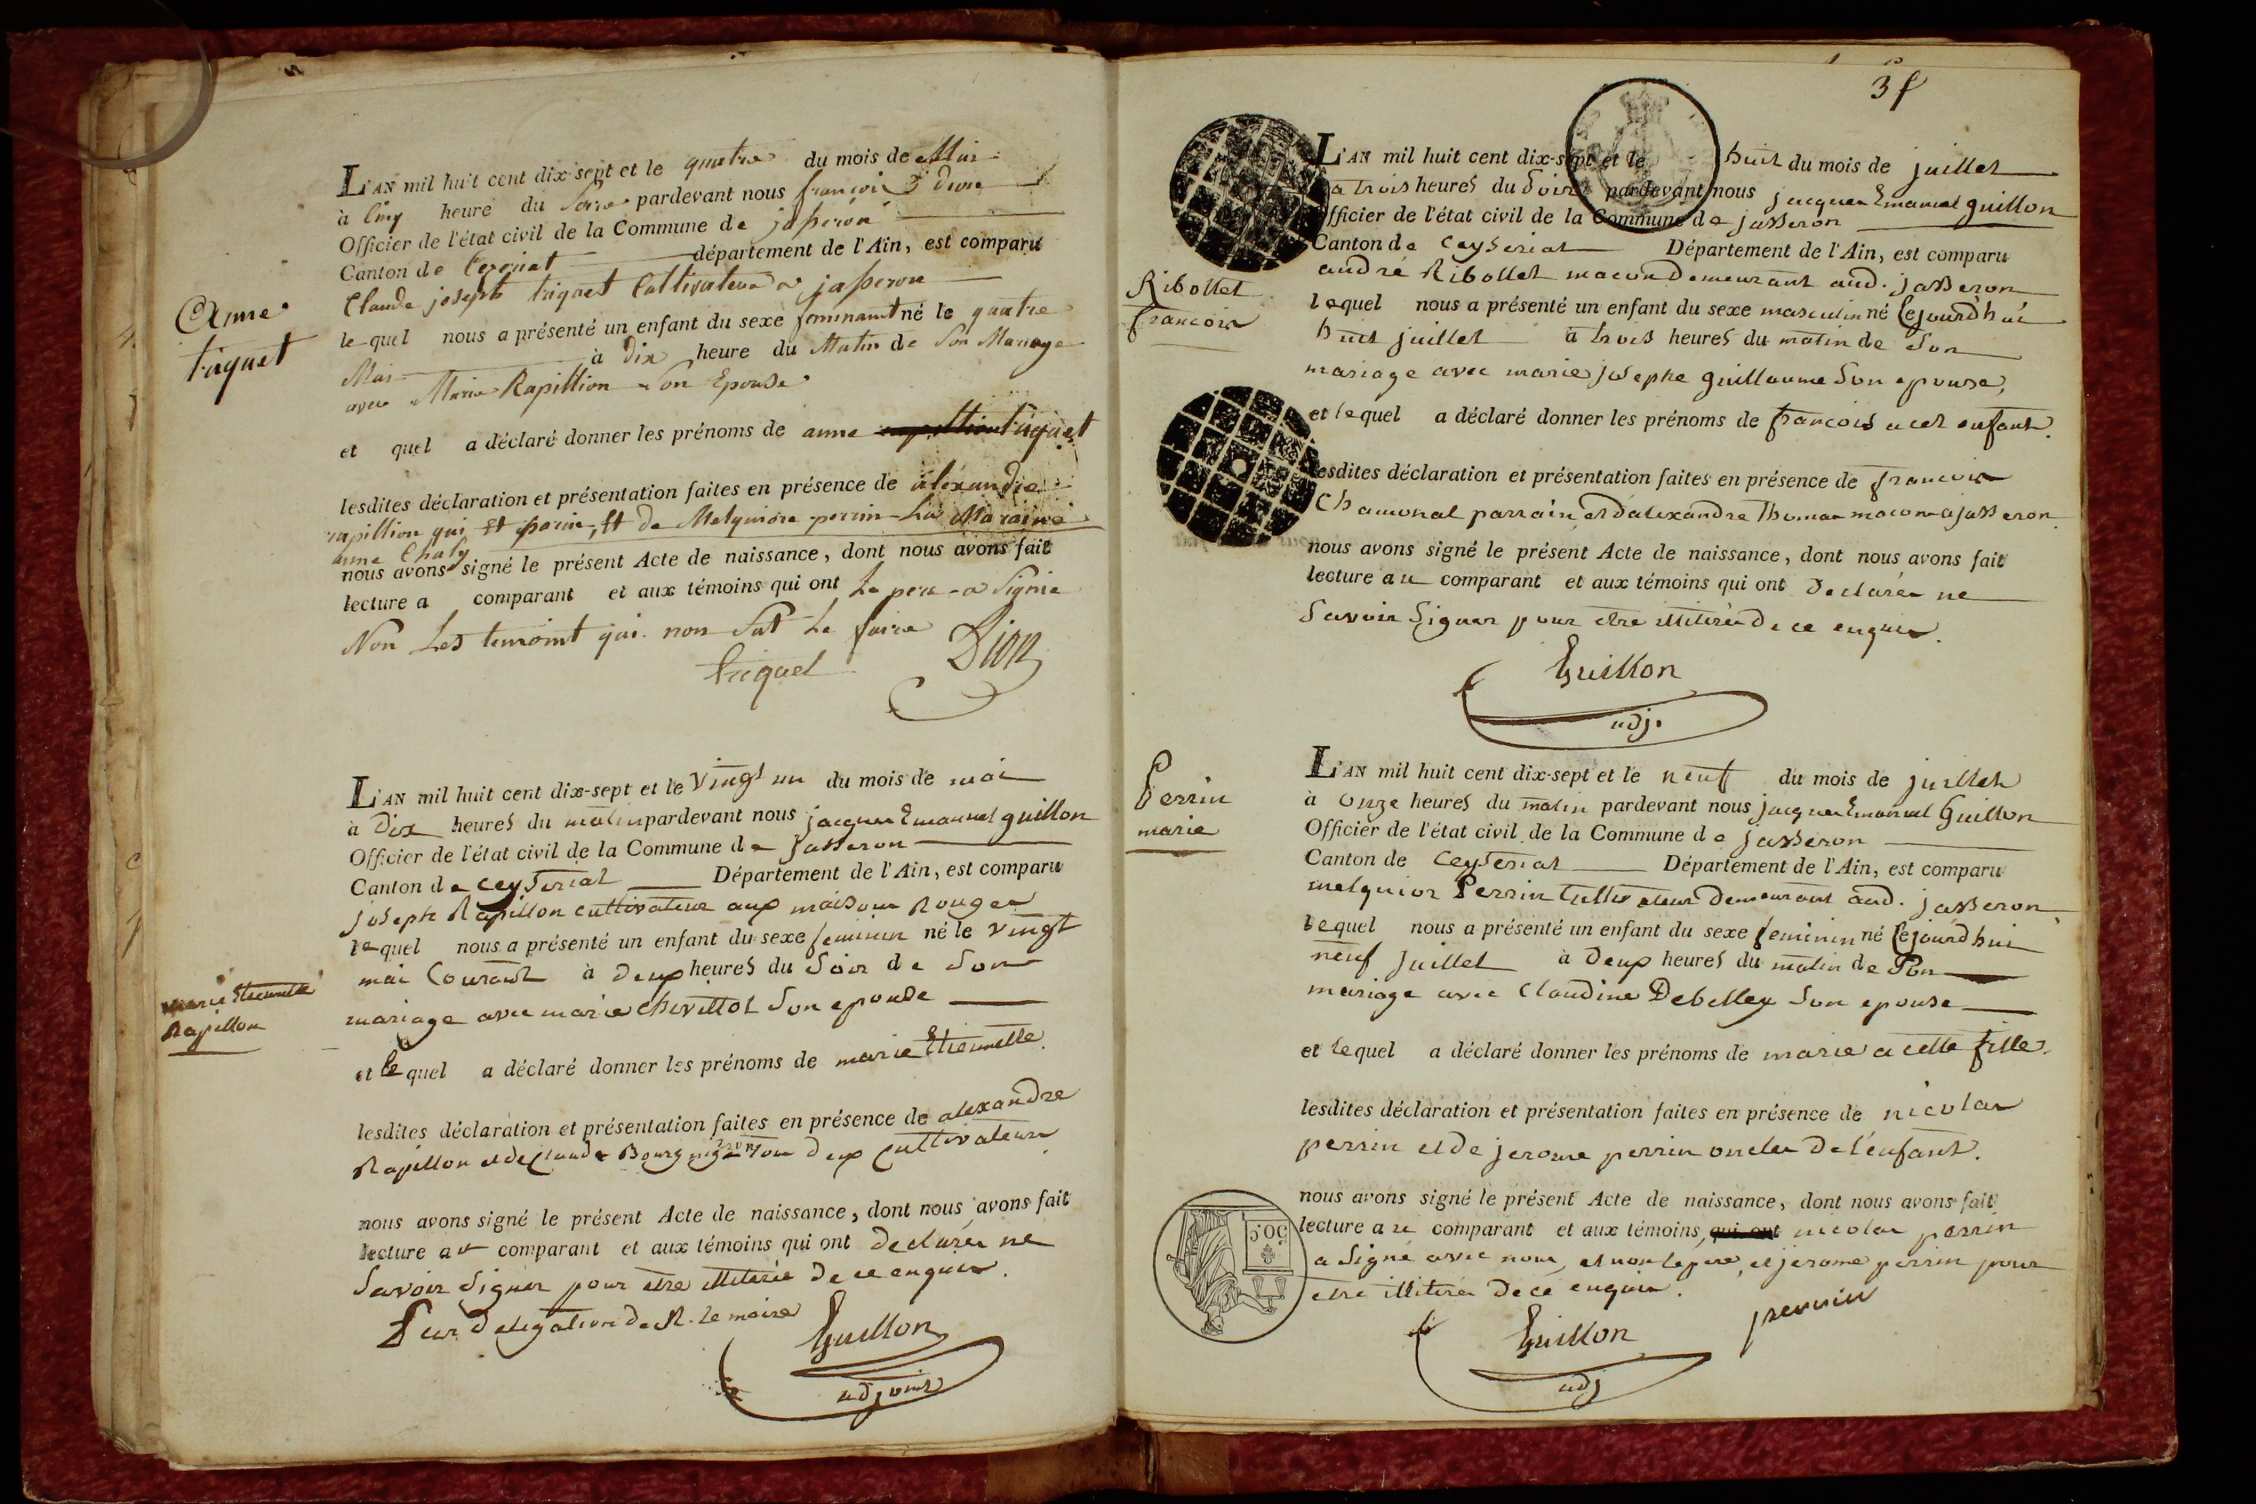 L'AN mil huit cent dix-sept et le quatre du mois de Mai
à Cinq heure du Soire pardevant nous françois Dion
Officier de l'état civil de la Commune de jasseron
Canton de Cezeriat département de l'Ain, est comparu
Claude joseph triquet Cultivateur a jasseron
Anne
triquet
le quel nous a présenté un enfant du sexe né le quatre
Mai à Dix heure du Matin de Son Mariage
avec Marie Rapillion Son Epouse
et quel a déclaré donner les prénoms de anne triquet
lesdites déclaration et présentation faites en présence de alexandre
rapillion qui Et et de Melquiore perrin La Maraine
anne Chaly
nous avons signé le présent Acte de naissance, dont nous avons fait
lecture a comparant et aux témoins qui ont Le pere a Signie
Non Les temoint qui non Sut Le faire
triquet Dion
L'AN mil huit cent dix-sept et le Vingt un du mois de mai
à Dix heures du matin pardevant nous jacques Emanuel guillon
Officier de l'état civil de la Commune de jasseron
Canton de Ceyseriat Département de l'Ain, est comparu
joseph Rapillon cultivateur aux maisons Rouges
lequel nous a présenté un enfant du sexe feminin né le vingt
mai Courant à Deux heures du Soir de Son
Marie Etiennette
Rapillon
mariage avec marie chevillot Son epouse
et lequel a déclaré donner les prénoms de marie Etiennette.
lesdites déclaration et présentation faites en présence de alexandre
Rapillon et de Claude Bourguignon tous Deux Cultivateurs.
nous avons signé le présent Acte de naissance, dont nous avons fait
lecture au comparant et aux témoins qui ont Declarés ne
Savoir Signer pour etre illiterés De ce enquis.
Par Delegation De M. le maire
Guillon
adjoint
3 f
L'AN mil huit cent dix-sept et le huit du mois de juillet
à trois heures du Soir pardevant nous jacques Emanuel guillon
Officier de l'état civil de la Commune de jasseron
Canton de Ceyseriat Département de l'Ain, est comparu
andré Ribollet macon Demeurant aud. jasseron
Ribollet
francois
lequel nous a présenté un enfant du sexe masculin né Cejourd'hui
huit juillet à trois heures du matin de Son
mariage avec marie josephe guillaume Son epouse,
et lequel a déclaré donner les prénoms de francois a cet enfant.
lesdites déclaration et présentation faites en présence de francois
Chamonal parrain, et d'alexandre Thomas macon a jasseron.
nous avons signé le présent Acte de naissance, dont nous avons fait
lecture au comparant et aux témoins qui ont Declarés ne
Savoir Signer pour etre illiterés De ce enquis.
Guillon
adj.
Perrin
marie
L'AN mil huit cent dix-sept et le neuf du mois de juillet
à Onze heures du matin pardevant nous jacques Emanuel Guillon
Officier de l'état civil de la Commune de jasseron
Canton de Ceyseriat Département de l'Ain, est comparu
melquior Perrin Cultivateur Demeurant aud. jasseron,
lequel nous a présenté un enfant du sexe feminin né Cejourd'hui
neuf juillet à Deux heures du matin de Son
mariage avec Claudine Debelley Son epouse
et lequel a déclaré donner les prénoms de marie a cette fille.
lesdites déclaration et présentation faites en présence de nicolas
perrin et de jerome perrin oncles De l'enfant.
nous avons signé le présent Acte de naissance, dont nous avons fait
lecture au comparant et aux témoins, qui ont nicolas perrin
a Signé avec nous, et non le pere, et jerome perrin pour
etre illiterés De ce enquis.
50c
Guillon perrin
adj